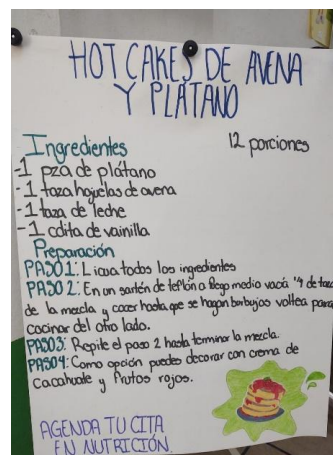 HOT CAKES DE AVENA
Y PLÁTANO
Ingredientes
12 porciones
-1 pza de plátano
-1 taza hojuelas de avena
-1 taza de leche
-1 cdita de vainilla
Preparación
PASO 1: Licua todos los ingredientes
PASO 2: En un sartén de teflón a fuego medio vacía 1/4 de taza
de la mezcla y cocer hasta que se hagan burbujas voltea para
cocinar del otro lado.
PASO 3: Repite el paso 2 hasta terminar la mezcla.
PASO 4: Como opción puedes decorar con crema de
cacahuate y frutos rojos.
AGENDA TU CITA
EN NUTRICIÓN